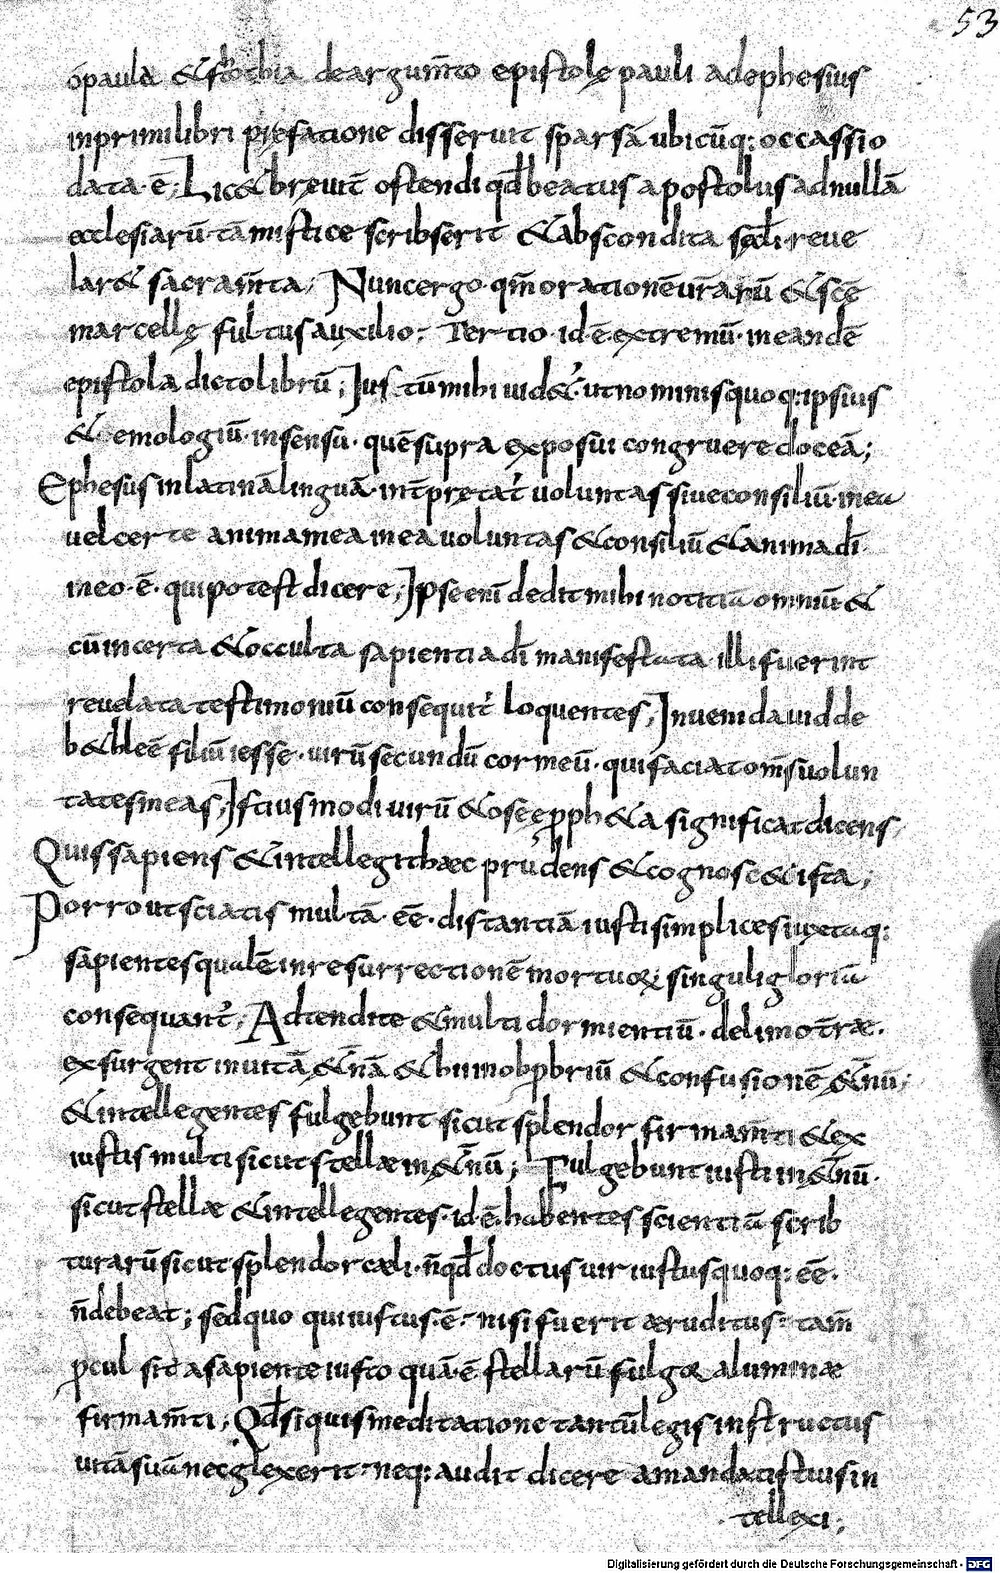 53
ópaula &eustochia deargum̅to epistolę pauli adephesius
inprimi libri pręfatione disseruit sparsā ubicūq: occassio
data·ē; Lic& breuit̅ ostendi qd̅ beatus apostolus ad nullā
ecclesiarū tā mistice scribserit &abscondita scd̅i·reue
lar& sacram̅ta; Nunc ergo·qm̅ orationē ur̅arū &scē
marcellę fultus auxilio: Tertio·id·ē·extremū·in eandē
epistola dictolibrū; Ius tū mihi uid&r̅·ut nominis quoq: ipsius
&emologiū·insensū·quē supra exposui congruere doceā;
Ephesus in latinā linguā·int̅pręt̅at̅ uoluntas siue consiliū·mea
uel certe anima mea inea uoluntas &consiliū &anima dī
ineo·ē·qui potest dicere; Ipse enī dedit mihi notitiā omniū &
cū incerta &occulta sapientia dī manifestata illi fuerint
reuelata testimoniū consequit̅ loquentes; Inueni dauid de
b&hleē filiū iesse·uirū secundū cor meū·qui faciat om̅s uolun
tates meas; Istiusmodi uirū &oseę pph&a significat dicens,
Quis sapiens &intellegit haec prudens &cognosc& ista;
Porro ut sciatis multā·eē·distantiā iusti simplices iuxtaq:
sapientes qualē in resurrectionē mortuoꝝ; singuli gloriā
consequant̅; Adtendite &multi dormientiū·delimo t̅ræ·
exsurgent inuitā &̅nā &hii inobpbriū &confusionē &̅nū;
&intellegentes fulgebunt sicut splendor firmam̅ti &ex
iustis multi sicut stellæ in &̅nū; Fulgebunt iusti in &̅nū·
sicut stellæ &intellegentes·id·ē·habentes scientiā scrib
turarū sicut splendor cæli·n̅qd̅ doctus uir iustus quoq: eē·
n̅debeat; sed quo qui iustus·ē: nisi fuerit æruditus: tam̅
pcul sit a sapiente iusto quā·ē stellarū fulgor a luminæ
firmam̅ti; Qd̅ siquis meditatione tantū legis instructus
uitā suā necglexerit: neq: audit dicere amandatistuis in
tellexi;
Digitalisierung gefördert durch die Deutsche Forschungsgemeinschaft - DFG